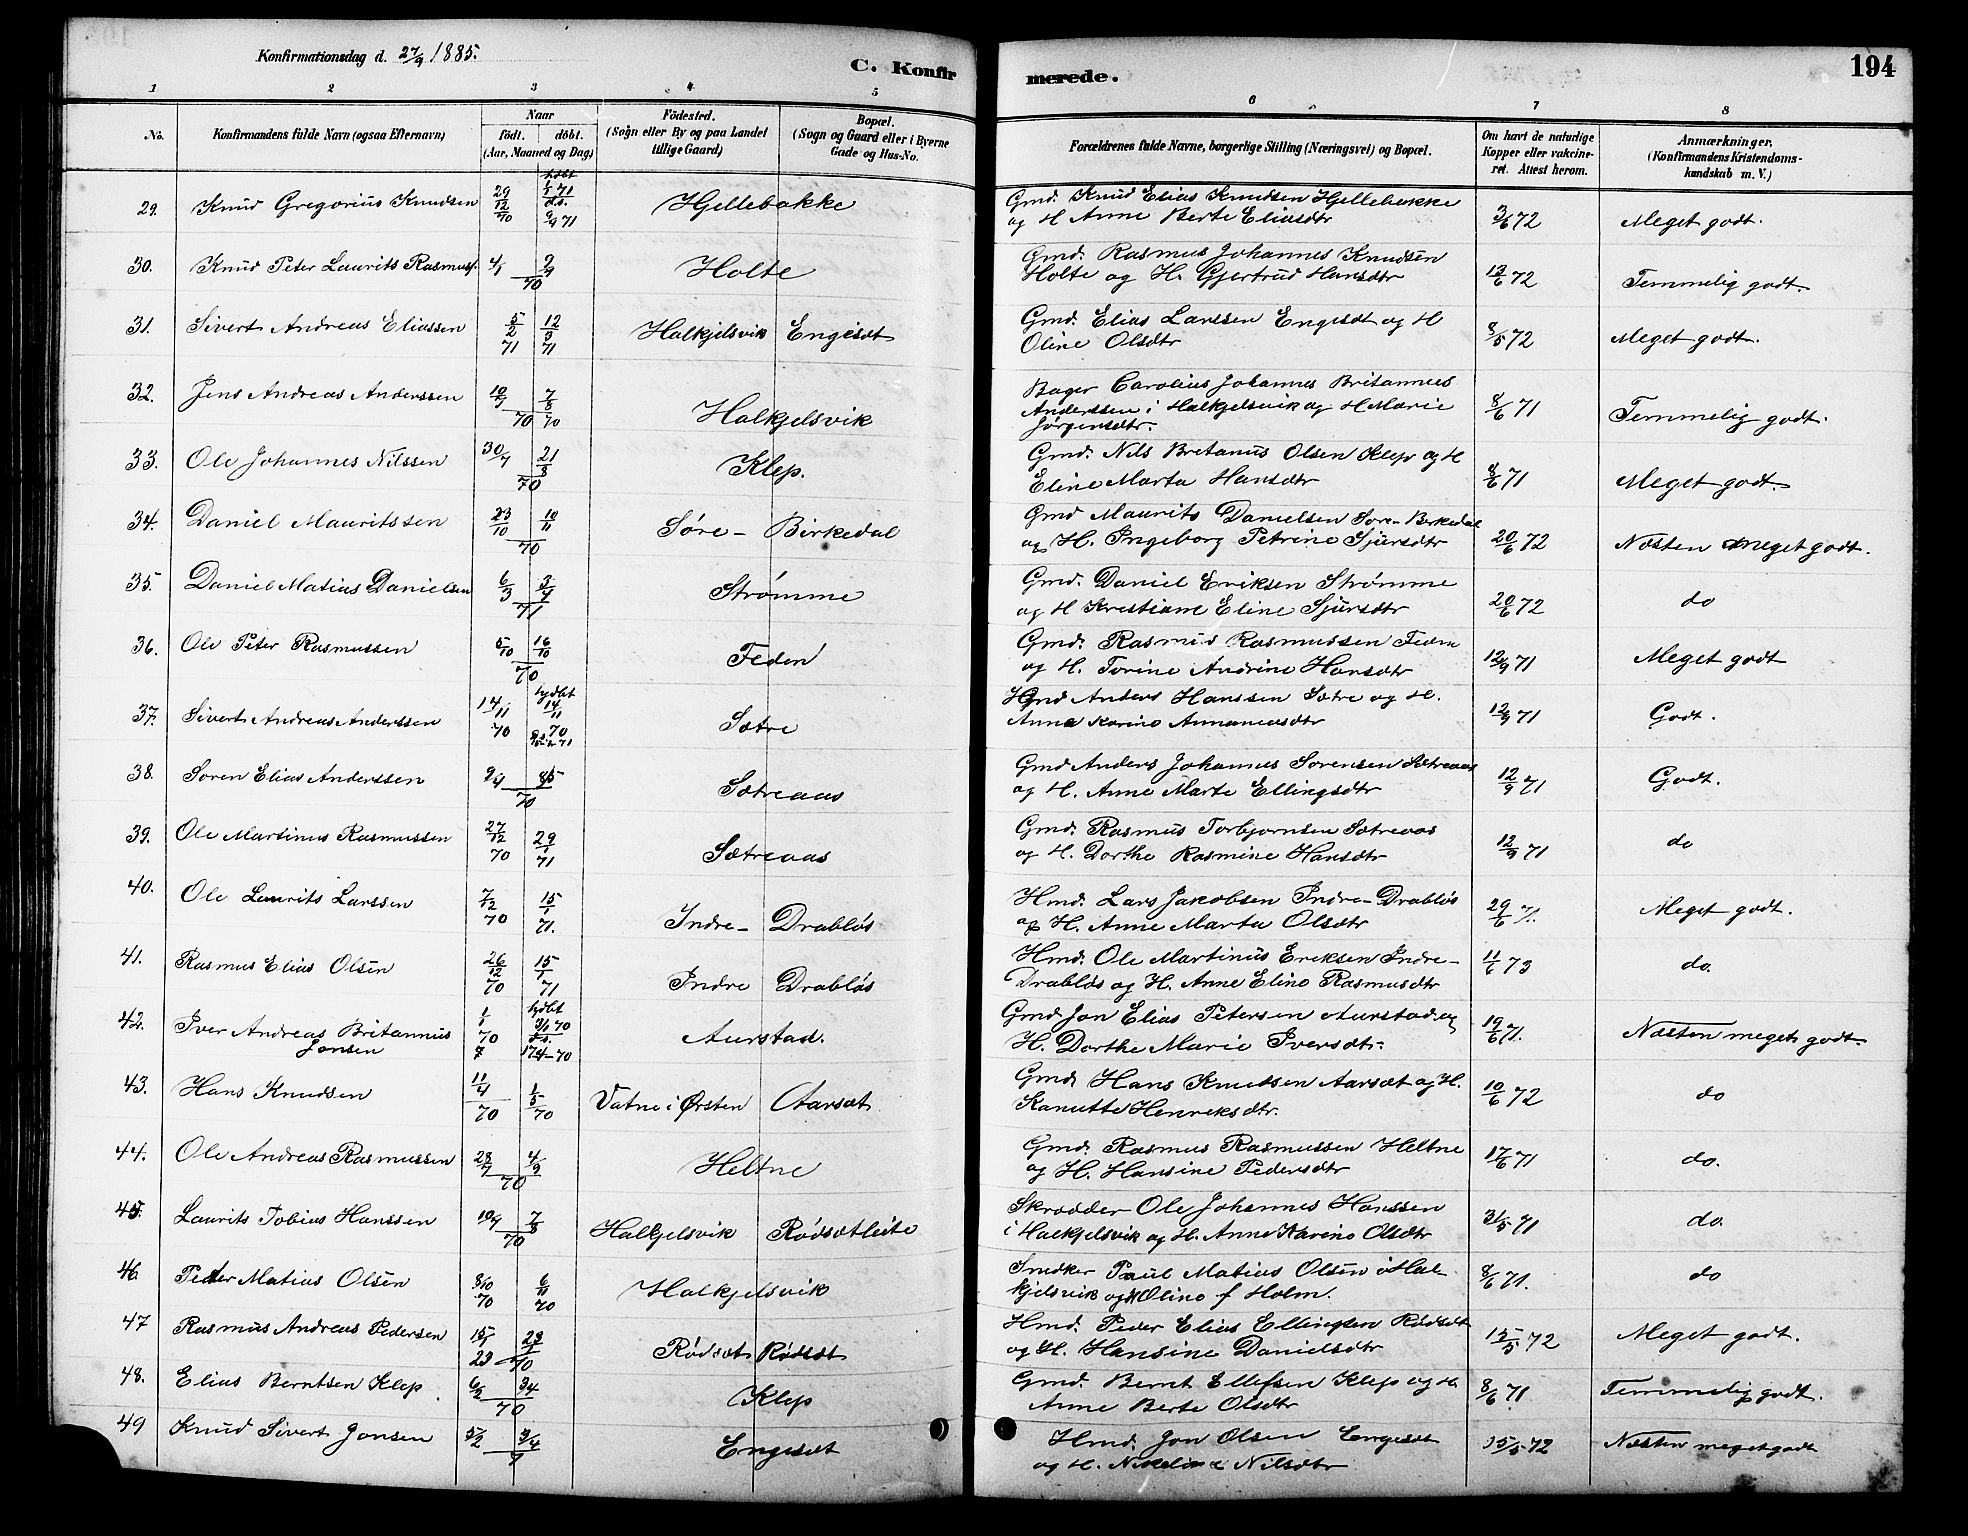 Konfirmationsdag d. 27/9 1885.
C. Konfir
merede.
194
1 2 3 4 5 6 7 8
No.
Konfirmandens fulde Navn (ogsaa Efternavn)
Naar
födt. döbt.
(Aar, Maaned og Dag)
Födested.
(Sogn eller By og paa Landet
tillige Gaard)
Bopæl.
(Sogn og Gaard eller i Byerne
Gade og Hus-No.
Forældrenes fulde Navne, borgerlige Stilling (Næringsvei) og Bopæl.
Om havt de naturlige
Kopper eller vakcine-
ret. Attest herom.
Anmærkninger.
(Konfirmandens Kristendoms-
kundskab m. V.)
29. Knud Gregorius Knudsen 29/12 70 hdbt 1/1 71 d.s. 9/4 71 Hjellebakke Gmd. Knud Elias Knudsen Hjellebakke
og H. Anne Berte Eliasdtr 3/6 72 Meget godt.
30. Knud Peter Laurits Rasmuss. 4/9 70 Holte Gmd. Rasmus Johannes Knudsen
Holte og H. Gjertrud Hansdtr 13/6 72 Temmelig godt.
31. Sivert Andreas Eliassen 5/2 71 12/3 71 Halkjelsvik Engesæt Gmd. Elias Larssen Engesæt og H
Oline Olsdtr 8/5 72 Meget godt.
32. Jens Andreas Anderssen 10/7 70 7/8 70 Halkjelsvik Bager Carolius Johannes Britannus
Anderssen i Halkjelsvik og H Marie
Jørgensdtr. 8/6 71 Temmelig godt.
33. Ole Johannes Nilssen 30/7 21/8 70 Klep. Gmd. Nils Bretanus Olsen Klep og H
Eline Marta Hansdtr 8/6 71 Meget godt.
34. Daniel Mauritssen 23/10 10/11 70 Søre- Birkedal Gmd Maurits Danielsen Søre-Birkedal
og H. Ingeborg Petrine Sjursdtr 20/6 72 Næsten meget godt.
35 Daniel Matias Danielsen 6/3 71 Strømme Gmd. Daniel Eriksen Strømme
og H Kristiane Eline Sjursdtr 20/6 72 do
36. Ole Peter Rasmussen 5/10 16/10 70 Feden Gmd. Rasmus Rasmussen Feden
og H. Torine Andrine Hansdtr 12/9 71 Meget godt
37. Sivert Andreas Anderssen 14/11 70 hjdbt 14/11 70 Sætre Gmd Anders Hanssen Sætre og H.
Anne Karine Annaniasdtr 12/9 71 Godt.
38. Søren Elias Anderssen 9/4 8/5 70 Sætreaas Gmd Anders Johannes Sørensen Sætreaas
og H. Anne Marte Ellingsdtr 12/9 71 Godt.
39. Ole Martinus Rasmussen 27/12 70 29/1 71 Sætreaas Gmd. Rasmus Torbjørnsen Sætreaas
og H. Dorthe Rasmine Hansdtr 12/9 71 do
40. Ole Laurits Larssen 7/12 70 15/1 71. Indre- Drabløs Hmd. Lars Jakobsen Indre-Drabløs
og H. Anne Marta Olsdtr 29/6 71. Meget godt.
41. Rasmus Elias Olsen 26/12 70 15/1 71 Indre Drabløs Hmd. Ole Martinus Eriksen Indre-
Drabløs og H. Anne Eline Rasmusdtr 11/6 73 do.
42. Iver Andreas Britannus
Jonsen 1/1 70 hjdbt 3/1 70 d.s. 17/4-70 Aurstad. Gmd Jon Elias Petersen Aurstad og
H. Dorthe Marie Iversdtr. 19/6 71. Næsten meget godt.
43. Hans Knudsen 11/4 70 1/5 70 Vatne i Ørsten Aarsæt Gmd Hans Knudsen Aarsæt og H.
Kanutte Henreksdtr. 10/6 72 do
44. Ole Andreas Rasmussen 28/7 4/9 70 Heltne Gmd. Rasmus Rasmussen Heltne
og H. Hansine Pedersdtr 17/6 71 do.
45. Laurits Tobias Hanssen 10/7 7/8 70 Halkjelsvik Rødsætleite Skrædder Ole Johannes Hanssen
i Halkjelsvik og H. Anne Karine Olsdtr 31/5 71 do.
46. Peder Matias Olsen 8/10 70 6/11 70 Halkjelsvik Snedker Paul Matius Olsen i Hal-
kjelsvik og H Oline f Holm. 8/6 71. do
47 Rasmus Andreas Pedersen 70 Rødsæt Rødsæt Hmd. Peder Elias Ellingsen Rødsæt
og H. Hansine Danielsdtr 15/5 72 Meget godt.
48. Elias Berntsen Klep 6/2 3/4 70 Klep Gmd. Bernt Ellefsen Klep og H.
Anne Berte Olsdtr 8/6 71 Temmelig godt.
49 Knud Sivert Jonsen 5/2 3/4 Engesæt Hmd. Jon Olsen Engesæt
og H. Nikeline Nilsdtr 15/5 72 Næsten meget godt